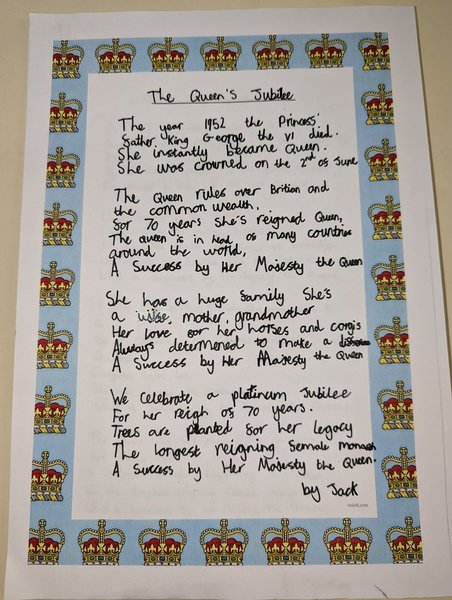 The Queen's Jubilee
The year 1952 the Princess'
father King George the VI died.
She instantly became Queen.
She was crowned on the 2nd of June
The Queen rules over Brition and
the common wealth.
for 70 years she's reigned Queen,
The queen is in head, of many countries
around the world,
A Success by Her Majesty the Queen
She has a huge family She's
a wife, mother, grandmother
Her love for her horses and corgis
Always determened to make a
A Success by Her Majesty the Queen
We celebrate a platinum Jubilee
For her reigh of 70 years.
Trees are planted for her legacy
The longest reigning female monarch
A Success by Her Majesty the Queen.
by Jack
twinkl.com